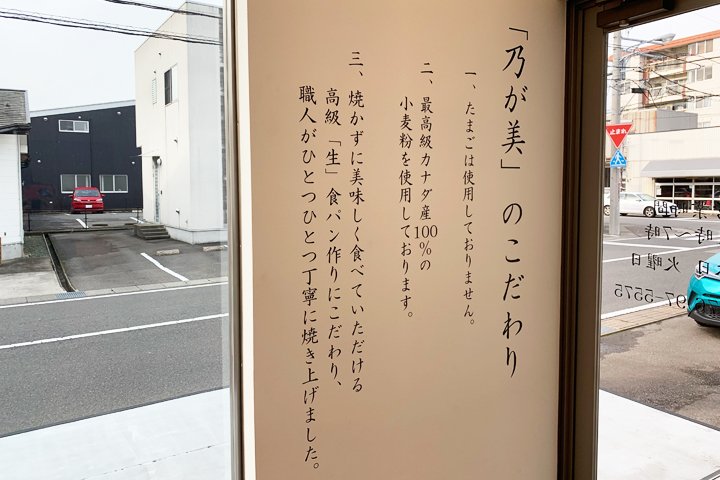 「乃が美」のこだわり
一、たまごは使用しておりません。
二、最高級カナダ産100%の
小麦粉を使用しております。
三、焼かずに美味しく食べていただける
高級「生」食パン作りにこだわり、
職人がひとつひとつ丁寧に焼き上げました。
止まれ
時～7時
火曜日
97-5575